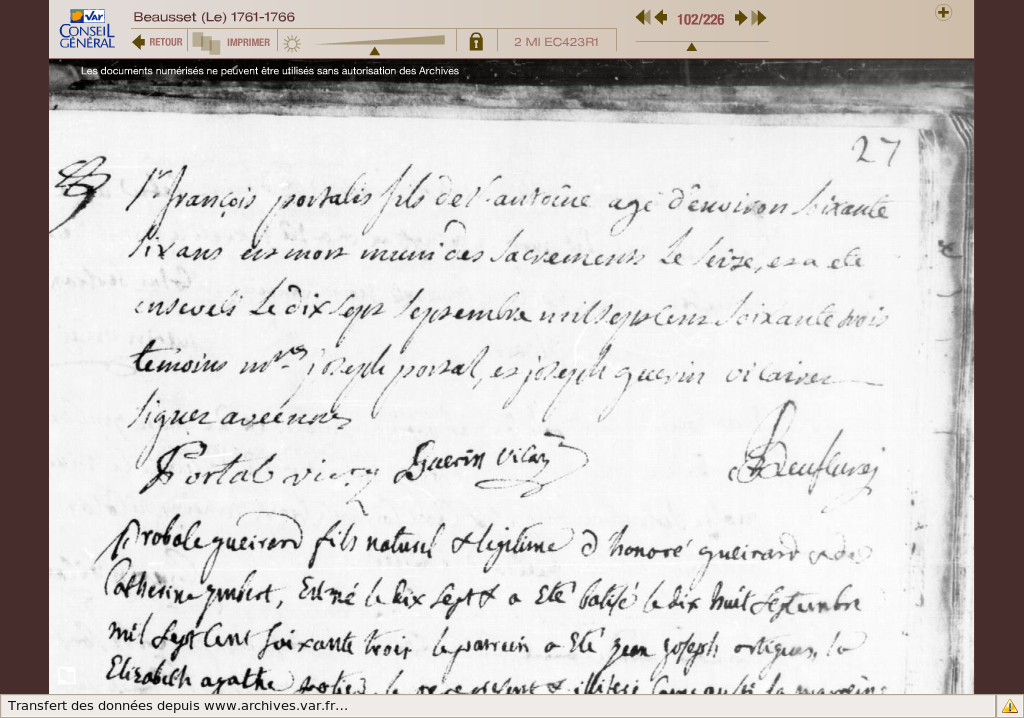 Beausset (Le) 1761-1766
102/226
VAR
CONSEIL
GÉNÉRAL
RETOUR
IMPRIMER
2 MI EC423R1
Les documents numérisés ne peuvent être utilisés sans autorisation des Archives
27
Sr françois portalis fils de antoine agé d'environ soixante
six ans est mort muni des sacremens le seize, et a eté
enseveli le dix sept septembre mil sept cent soixante trois
temoins joseph portal, et joseph guerin vicaires
signez avec nous
Portal vic Guerin vicar
gueirard fils naturel & legitime d honoré gueirard & de
Catherine imbert, né le dix sept & a eté batisé le dix huit septembre
mil sept cent soixante trois le parrein a eté jean joseph la
Elizabeth agathe le pere present & illiteré la marreine
Transfert des données depuis www.archives.var.fr...